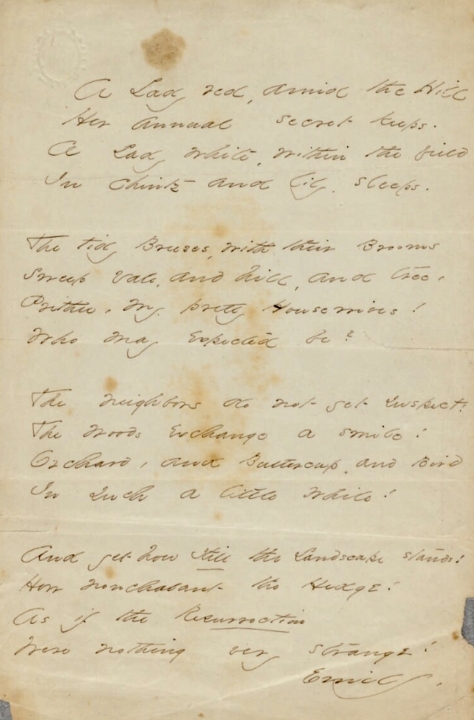 A Lady red, amid the Hill
Her annual secret keeps.
A Lady white, within the field
In chintz and lily, sleeps.
The tidy Breezes, with their Brooms
Sweep vale, and hill, and tree.
Prithee, my pretty Housewives!
Who may expected be?
The neighbors do not yet suspect!
The Woods exchange a smile!
Orchard, and Buttercup, and Bird
In such a little while!
And yet how still the Landscape stands!
How nonchalant the Hedge!
As if the Resurrection
Were nothing very strange!
Emily.